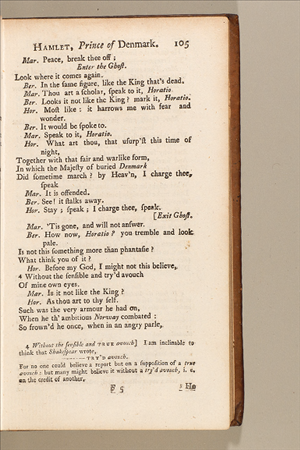 HAMLET, Prince of Denmark. 105
Mar. Peace, break thee off;
Enter the Ghoſt.
Look where it comes again.
Ber. In the ſame figure, like the King that's dead.
Mar. Thou art a ſcholar, ſpeak to it, Horatio
Ber. Looks it not like the King? mark it, Horatio.
Hor. Moſt like: it harrows me with fear and
wonder.
Ber. It would be ſpoke to.
Mar. Speak to it, Horatio.
Hor. What art thou, that uſurp'ſt this time of
night,
Together with that fair and warlike form,
In which the Majeſty of buried Denmark
Did ſometime march? by Heav'n, I charge thee,
ſpeak
Mar. It is offended.
Ber. See! it ſtalks away.
Hor. Stay; ſpeak; I charge thee, ſpeak.
[Exit Ghoſt.
Mar. 'Tis gone, and will not anſwer.
Ber. How now, Horatio? you tremble and look
pale.
Is not this ſomething more than phantaſie?
What think you of it?
Hor. Before my God, I might not this believe,
4 Without the ſenſible and try'd avouch
Of mine own eyes.
Mar. Is it not like the King?
Hor. As thou art to thy ſelf.
Such was the very armour he had on,
When he th' ambitious Norway combated:
So frown'd he once, when in an angry parle,
4 Without the ſenſible and TRUE avouch] I am inclinable to
think that Shakeſpear wrote,
TRY'D avouch.
For no one could believe a report but on a ſuppoſition of a true
avouch: but many might believe it without a try'd avouch, i. e.
on the credit of another.
F 5
5 He